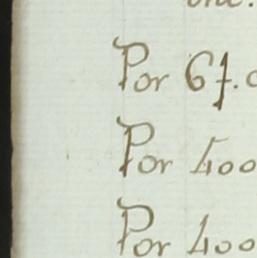 Por 67.
Por 400
Por 400